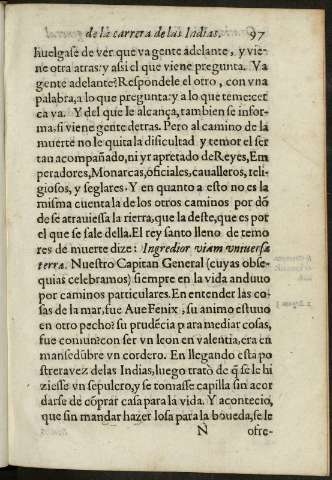 de la carrera de las Indias. 97
huelgase de ver que va gente adelante, y vie-
ne otra atras: y assi el que viene pregunta. Va
gente adelante? Respondele el otro, con vna
palabra, a lo que pregunta: y a lo que teme: cer
ca va. Y del que le alcança, tambien se infor-
ma, si viene gente detras. Pero al camino de la
muerte no le quita la dificultad y temor el ser
tau acompañado, ni yr apretado de Reyes, Em
peradores, Monarcas, oficiales, caualleros, reli-
giosos, y seglares. Y en quanto a esto no es la
misma cuenta la de los otros caminos por dō
de se atrauiessa la tierra, que la deste, que es por
el que se sale della. El rey santo lleno de temo
res de muerte dize: Ingredior viam vniuersæ
terræ. Nuestro Capitan General (cuyas obse-
quias celebramos) siempre en la vida anduuo
por caminos particulares. En entender las co-
sas de la mar, fue Aue Fenix, su animo estuuo
en otro pecho? su prudēcia para mediar cosas,
fue comun? con ser vn leon en valentia, era en
mansedūbre vn cordero. En llegando esta po
strera vez de las Indias, luego tratò de q̃ se le hi
ziesse vn sepulcro, y se tomasse capilla sin acor
darse de cōprar casa para la vida. Y acontecio,
que sin mandar hazer losa para la boueda, se le
N ofre-